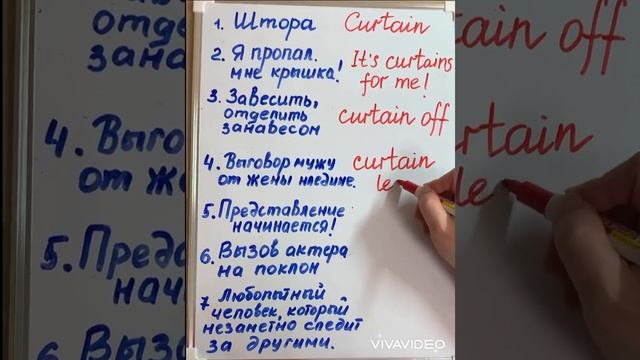 1. Штора Curtain
2. Я пропал. It's curtains
мне крышка! for me!
3. Завесить,
отделить curtain off
занавесом
4. Выговор мужу curtain
от жены наедине. le
5. Представление
начинается!
6. Вызов актера
на поклон
7 Любопытный
человек, который
незаметно следит
за другими.
VIVAVIDEO